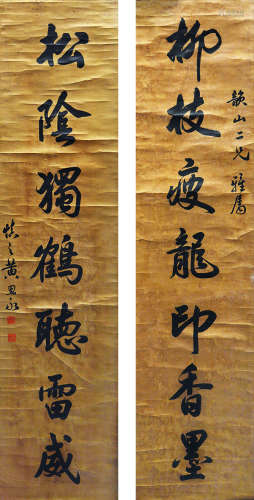 柳枝疲龍印香墨
韻山二兄雅屬
松陰獨鶴聽雷威
慎之黃思永